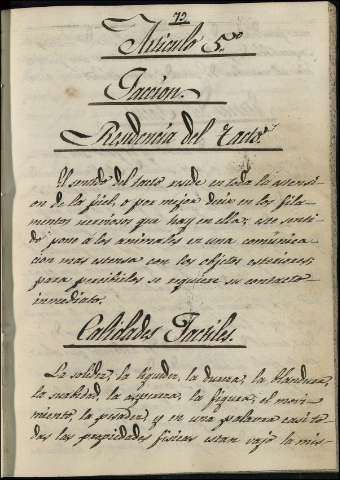 72
Articulo 5º
Taccion.
Residencia del Tacto.
El sentido del tacto reside en toda la estensi-
on de la piel, o por mejor decir en los fila-
mentos nerviosos que hay en ella; este senti-
do pone á los animales en una comunica-
cion mas estensa con los objetos esteriores;
para percibirlos se requiere su contacto
inmediato.
Calidades Tactiles.
La solidez, la liquidez, la dureza, la blandura,
la suabidad, la aspereza, la figura, el movi-
miento, la pesadez, y en una palabra casi to-
das las propiedades fisicas estan vajo la mis-